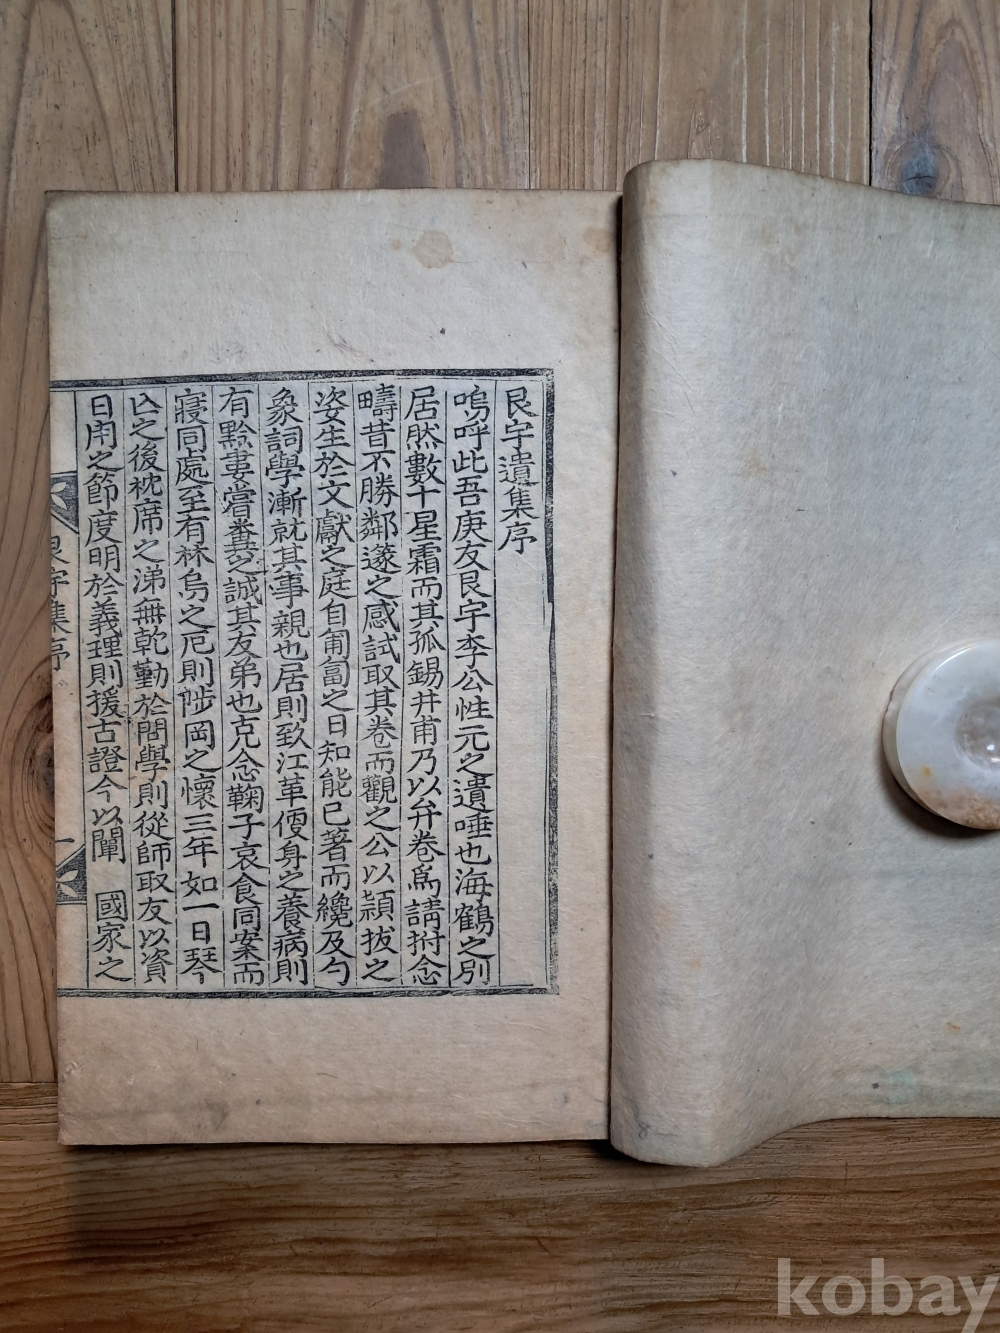 艮宇遺集序
嗚呼此吾庚友艮宇李公性元之遺唾也海鶴之別
居然數十星霜而其孤錫井甫乃以弁卷爲請拊念
疇昔不勝鄰篴之感試取其卷而觀之公以穎拔之
姿生於文獻之庭自匍匐之日知能已著而纔及勺
象詞學漸就其事親也居則致江革便身之養病則
有黔婁嘗糞之誠其友弟也克念鞠子哀食同案而
寢同處至有林烏之厄則陟岡之懷三年如一日琴
亾之後枕席之涕無乾勤於問學則從師取友以資
日用之節度明於義理則援古證今以闡 國家之
艮宇集序
一
kobay